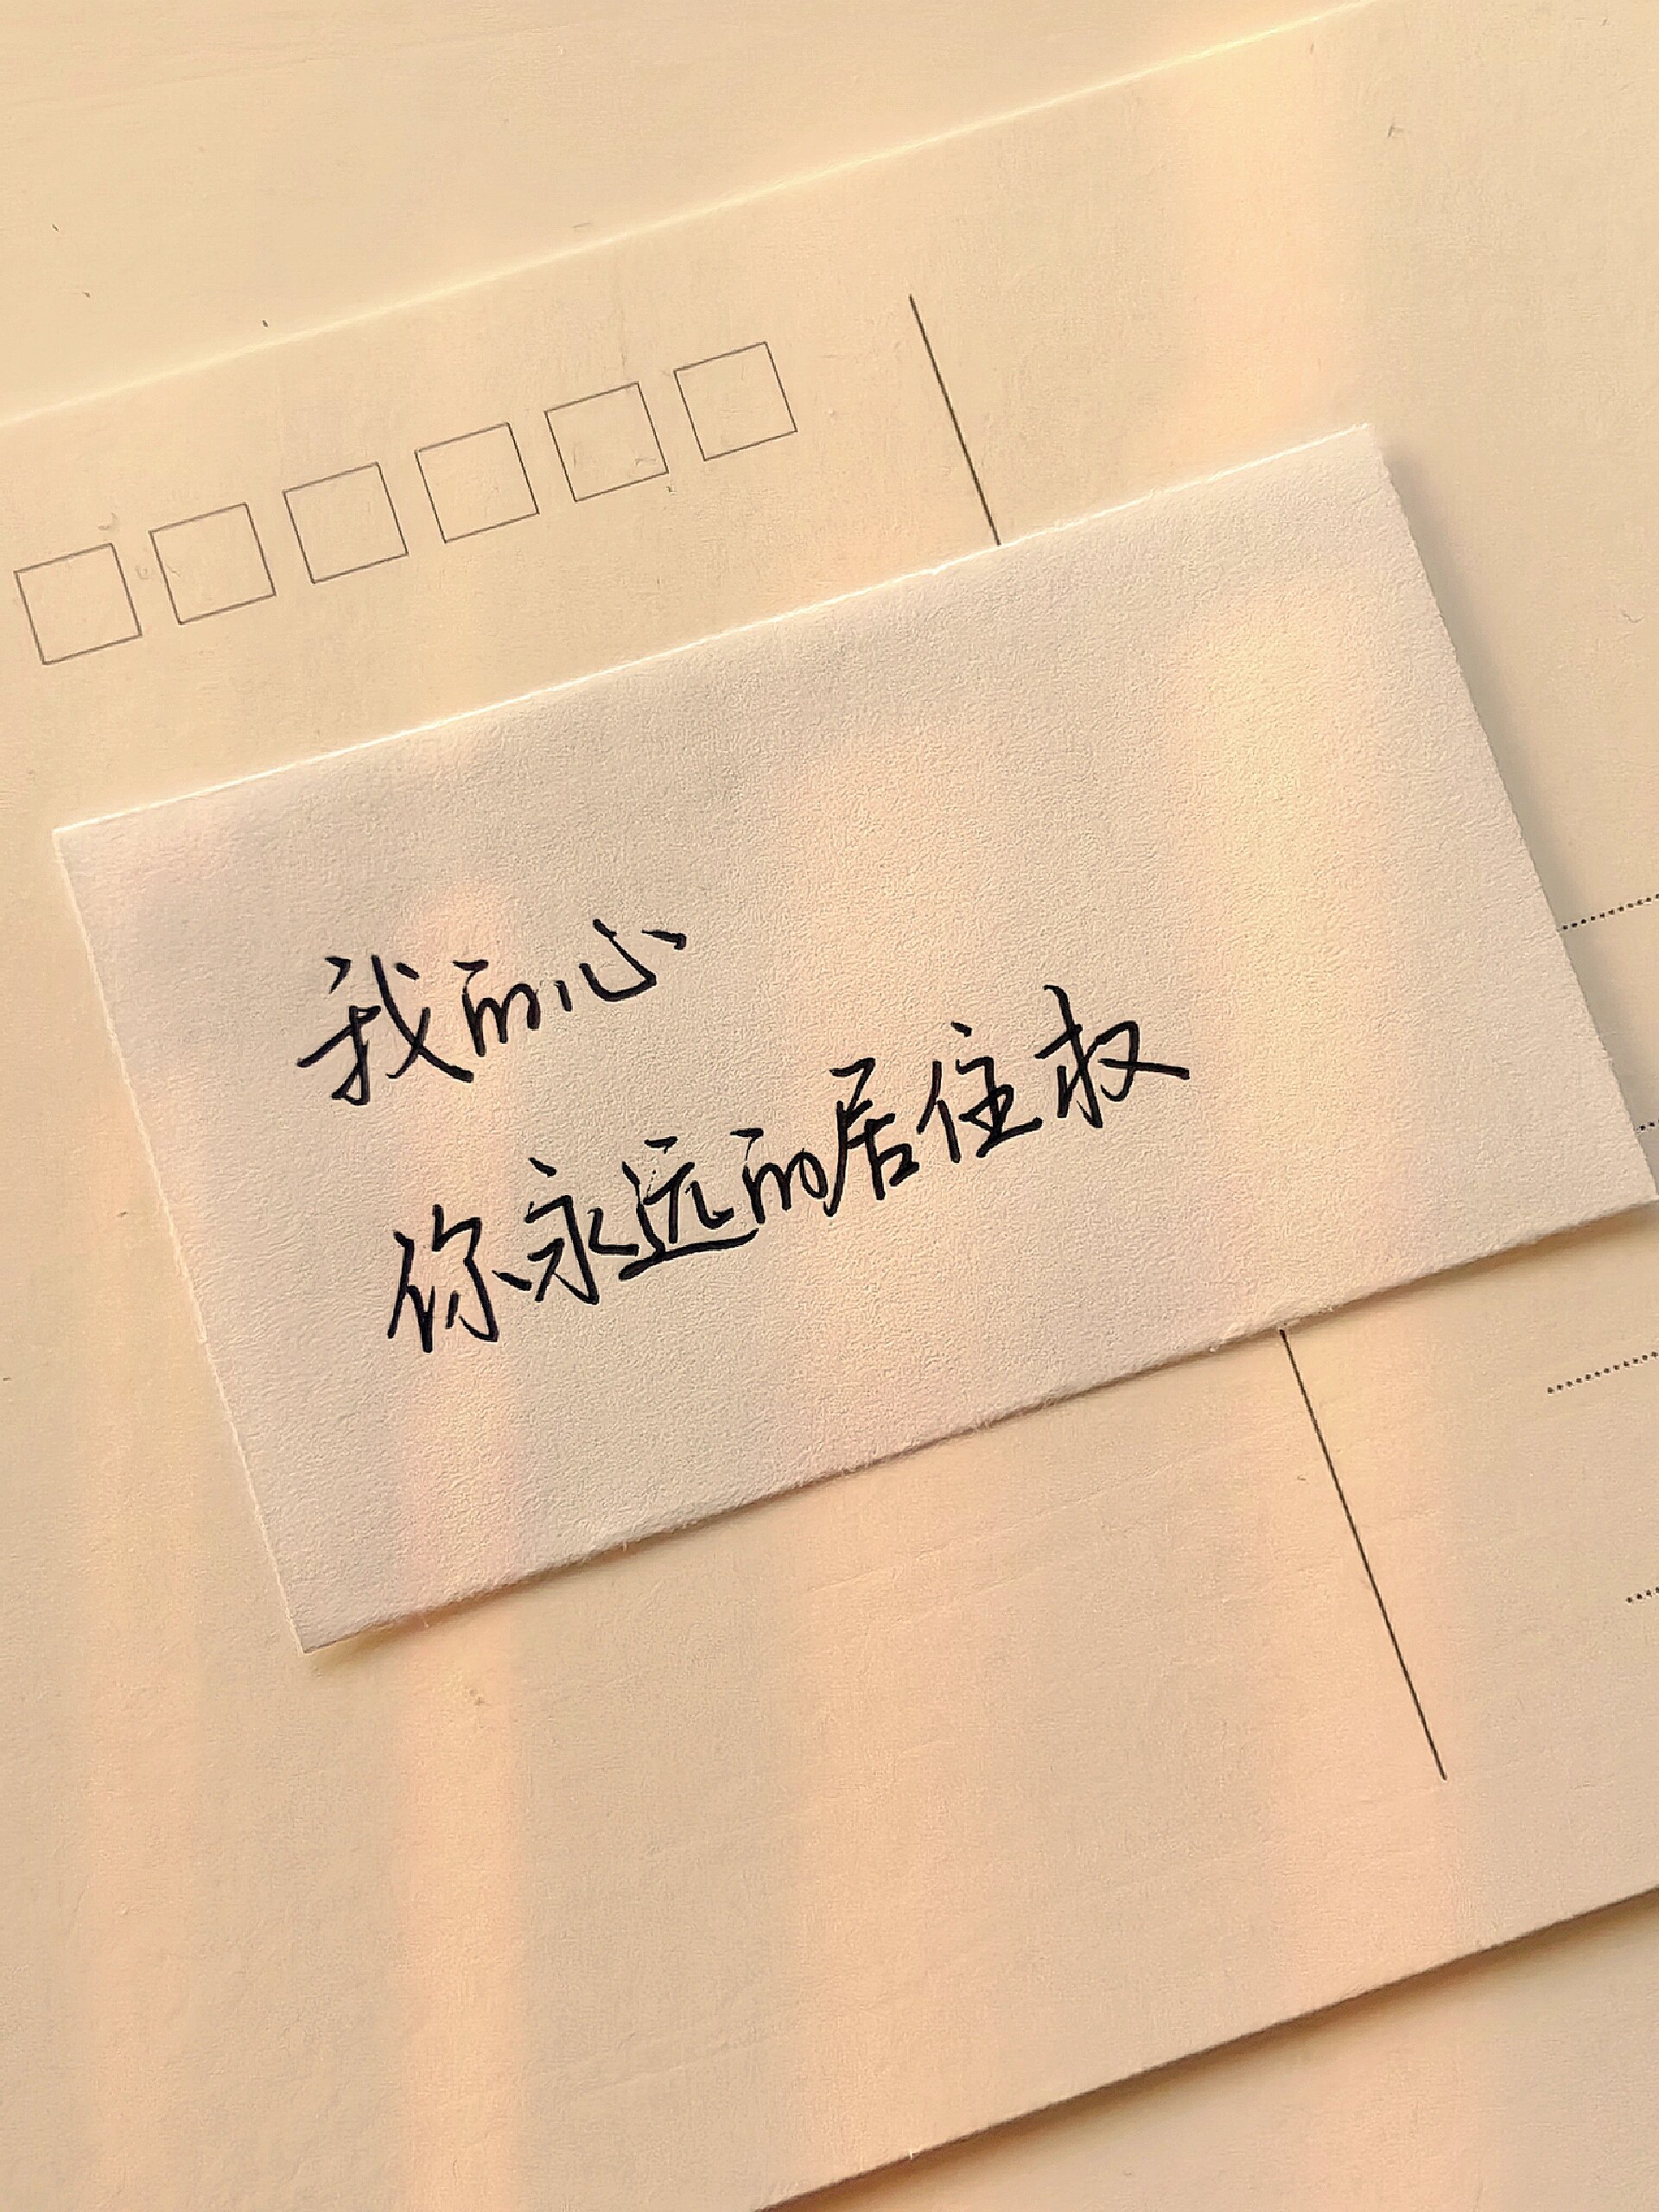 我的心
你永远的居住权